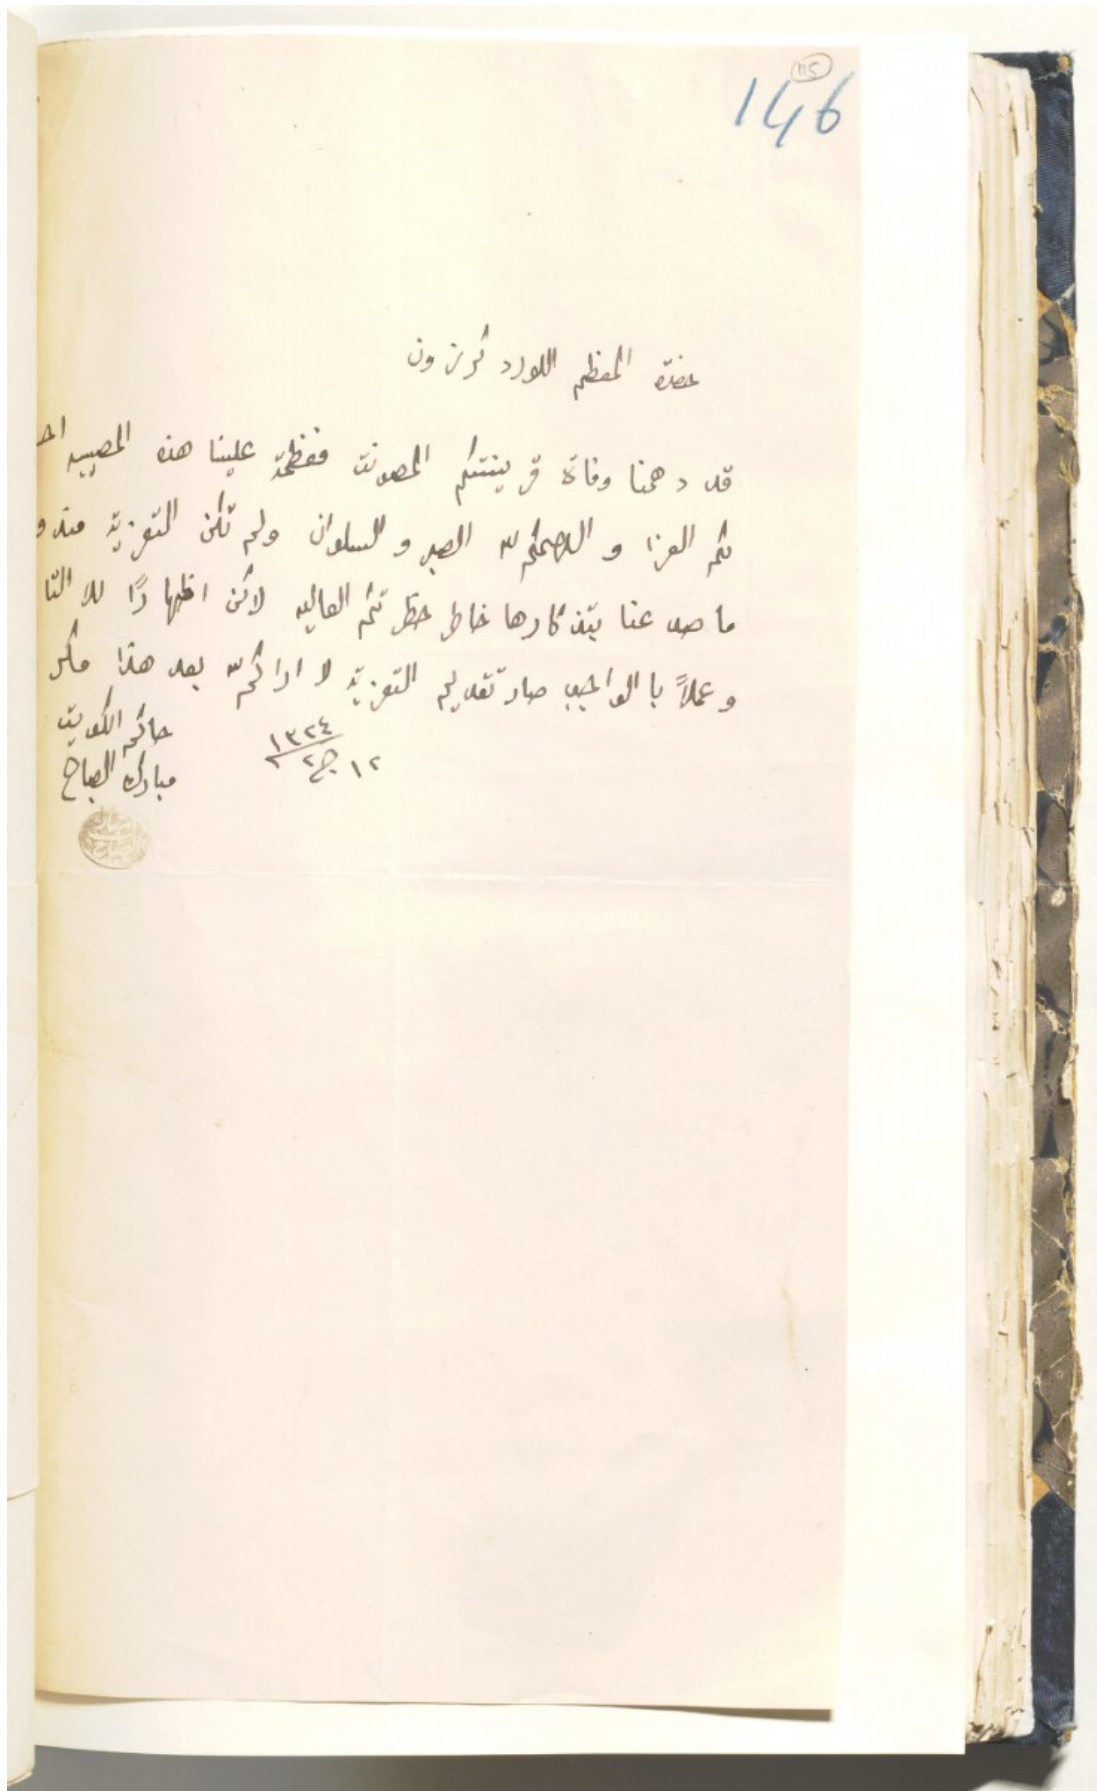 115
146
حضرة المعظم اللورد كرزون
قد دهمنا وفاة قرينتكم المصونت فعظمة علينا هذه المصيبه اح
لكم العزا و الهمكم الله الصبر و السلوان ولم تكن التعزية مندو
ما صد عنا بتذكارها خاطر حظرتكم العاليه لاكن اظهارًا للا التا
وعملاً با الواجب صار تقديم التعزية لا اراكم الله بعد هذا مكر
حاكم الكويت
مبارك الصباح
١٢ ج٢ ١٣٢٤